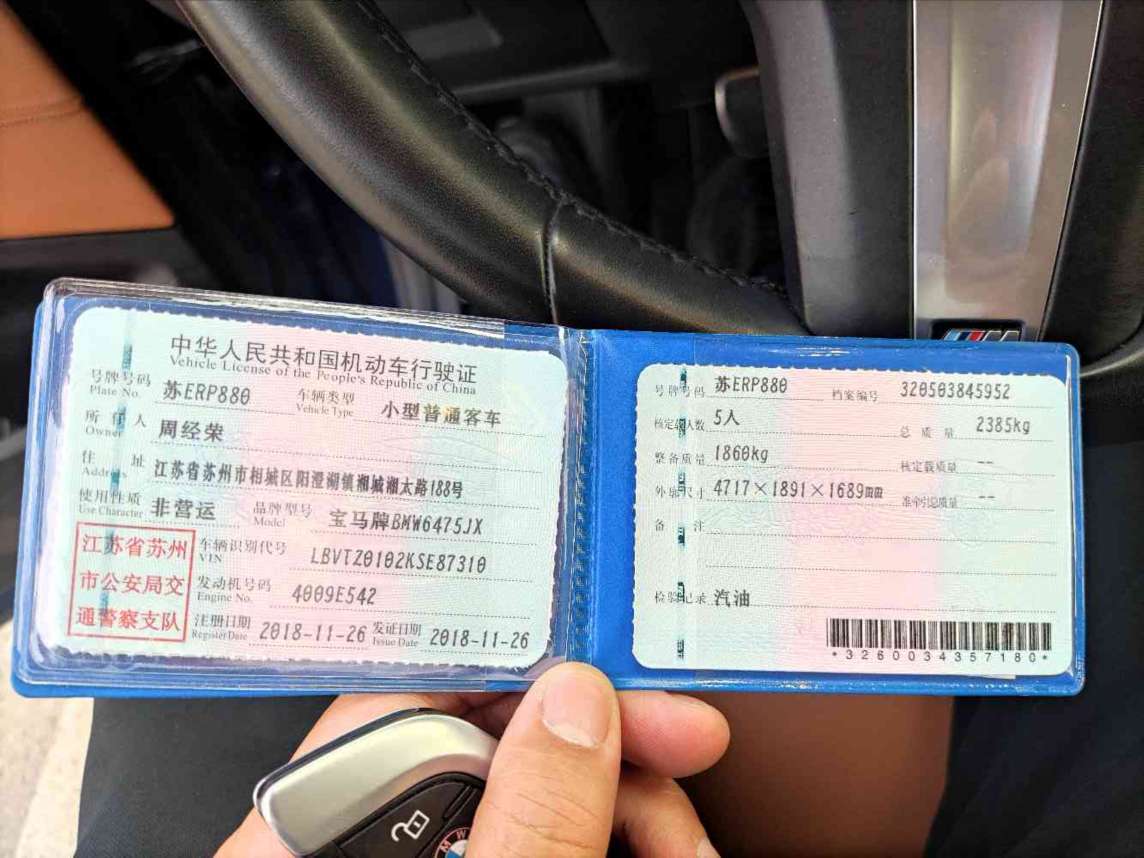 中华人民共和国机动车行驶证
Vehicle License of the People's Republic of China
号牌号码 苏ERP880 车辆类型 小型普通客车
Plate No. Vehicle Type
所有人 周经荣
Owner
住址 江苏省苏州市相城区阳澄湖镇湘城湘太路188号
Address
使用性质 非营运 品牌型号 宝马牌BMW6475JX
Use Character Model
江苏省苏州
市公安局交
通警察支队
车辆识别代号 LBVTZ0102KSE87310
VIN
发动机号码 4009E542
Engine No.
注册日期 2018-11-26 发证日期 2018-11-26
Register Date Issue Date
号牌号码 苏ERP880 档案编号 320503845952
核定载人数 5人 总质量 2385kg
整备质量 1860kg 核定载质量 --
外廓尺寸 4717×1891×1689mm 准牵引总质量 --
备注
检验记录 汽油
*3260034357180*
M
BMW